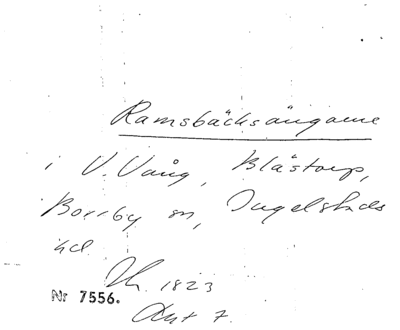 Ramsbäcksängarne
i V. Vång, Blästorp,
Borrby sn, Ingelstads
hd.
1823
Nr 7556.
Akt 7.